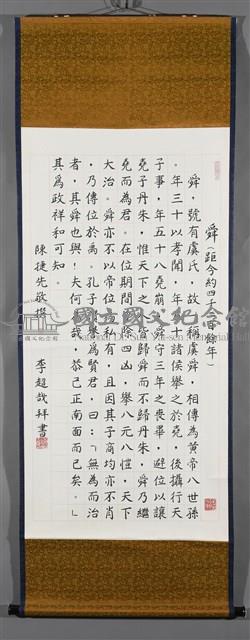 舜（距今約四千二百餘年）
舜，號有虞氏，故又稱虞舜，相傳為黃帝八世孫
。年三十以孝聞，年五十諸侯舉之於堯，後攝行天
子事，年五十八堯崩，舜守三年之喪畢，避位以讓
堯子丹朱，惟天下之人皆歸舜而不歸丹朱，舜乃繼
堯而為君。在位期間，除四凶，舉八元八愷，天下
大治。舜亦不以帝位為私有，且因其子商均亦不肖
，乃傳位於禹。孔子讚譽為賢君，曰：「無為而治
者，其舜也與！夫何為哉，恭己正南面而已矣。」
其為政祥和可知。
陳捷先敬撰
李超哉拜書
國立國父紀念館
National Dr. Sun Yat-sen Memorial Hall